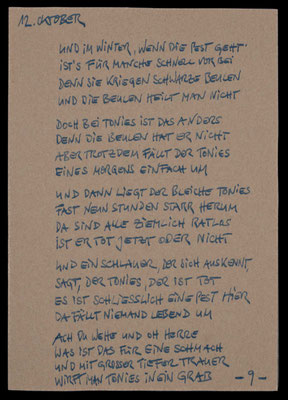 12. OKTOBER
UND IM WINTER, WENN DIE PEST GEHT
IST'S FÜR MANCHE SCHNELL VORBEI
DENN SIE KRIEGEN SCHWARZE BEULEN
UND DIE BEULEN HEILT MAN NICHT
DOCH BEI TONIES IST DAS ANDERS
DENN DIE BEULEN HAT ER NICHT
ABER TROTZDEM FÄLLT DER TONIES
EINES MORGENS EINFACH UM
UND DANN LIEGT DER BLEICHE TONIES
FAST NEUN STUNDEN STARR HERUM
DA SIND ALLE ZIEMLICH RATLOS
IST ER TOT JETZT ODER NICHT
UND EIN SCHLAUER, DER SICH AUSKENNT,
SAGT, DER TONIES, DER IST TOT
ES IST SCHLIESSLICH EINE PEST HIER
DA FÄLLT NIEMAND LEBEND UM
ACH DU WEHE UND OH HERRE
WAS IST DAS FÜR EINE SCHMACH
UND MIT GROSSER TIEFER TRAUER
WIRFT MAN TONIES IN EIN GRAB
– 9 –